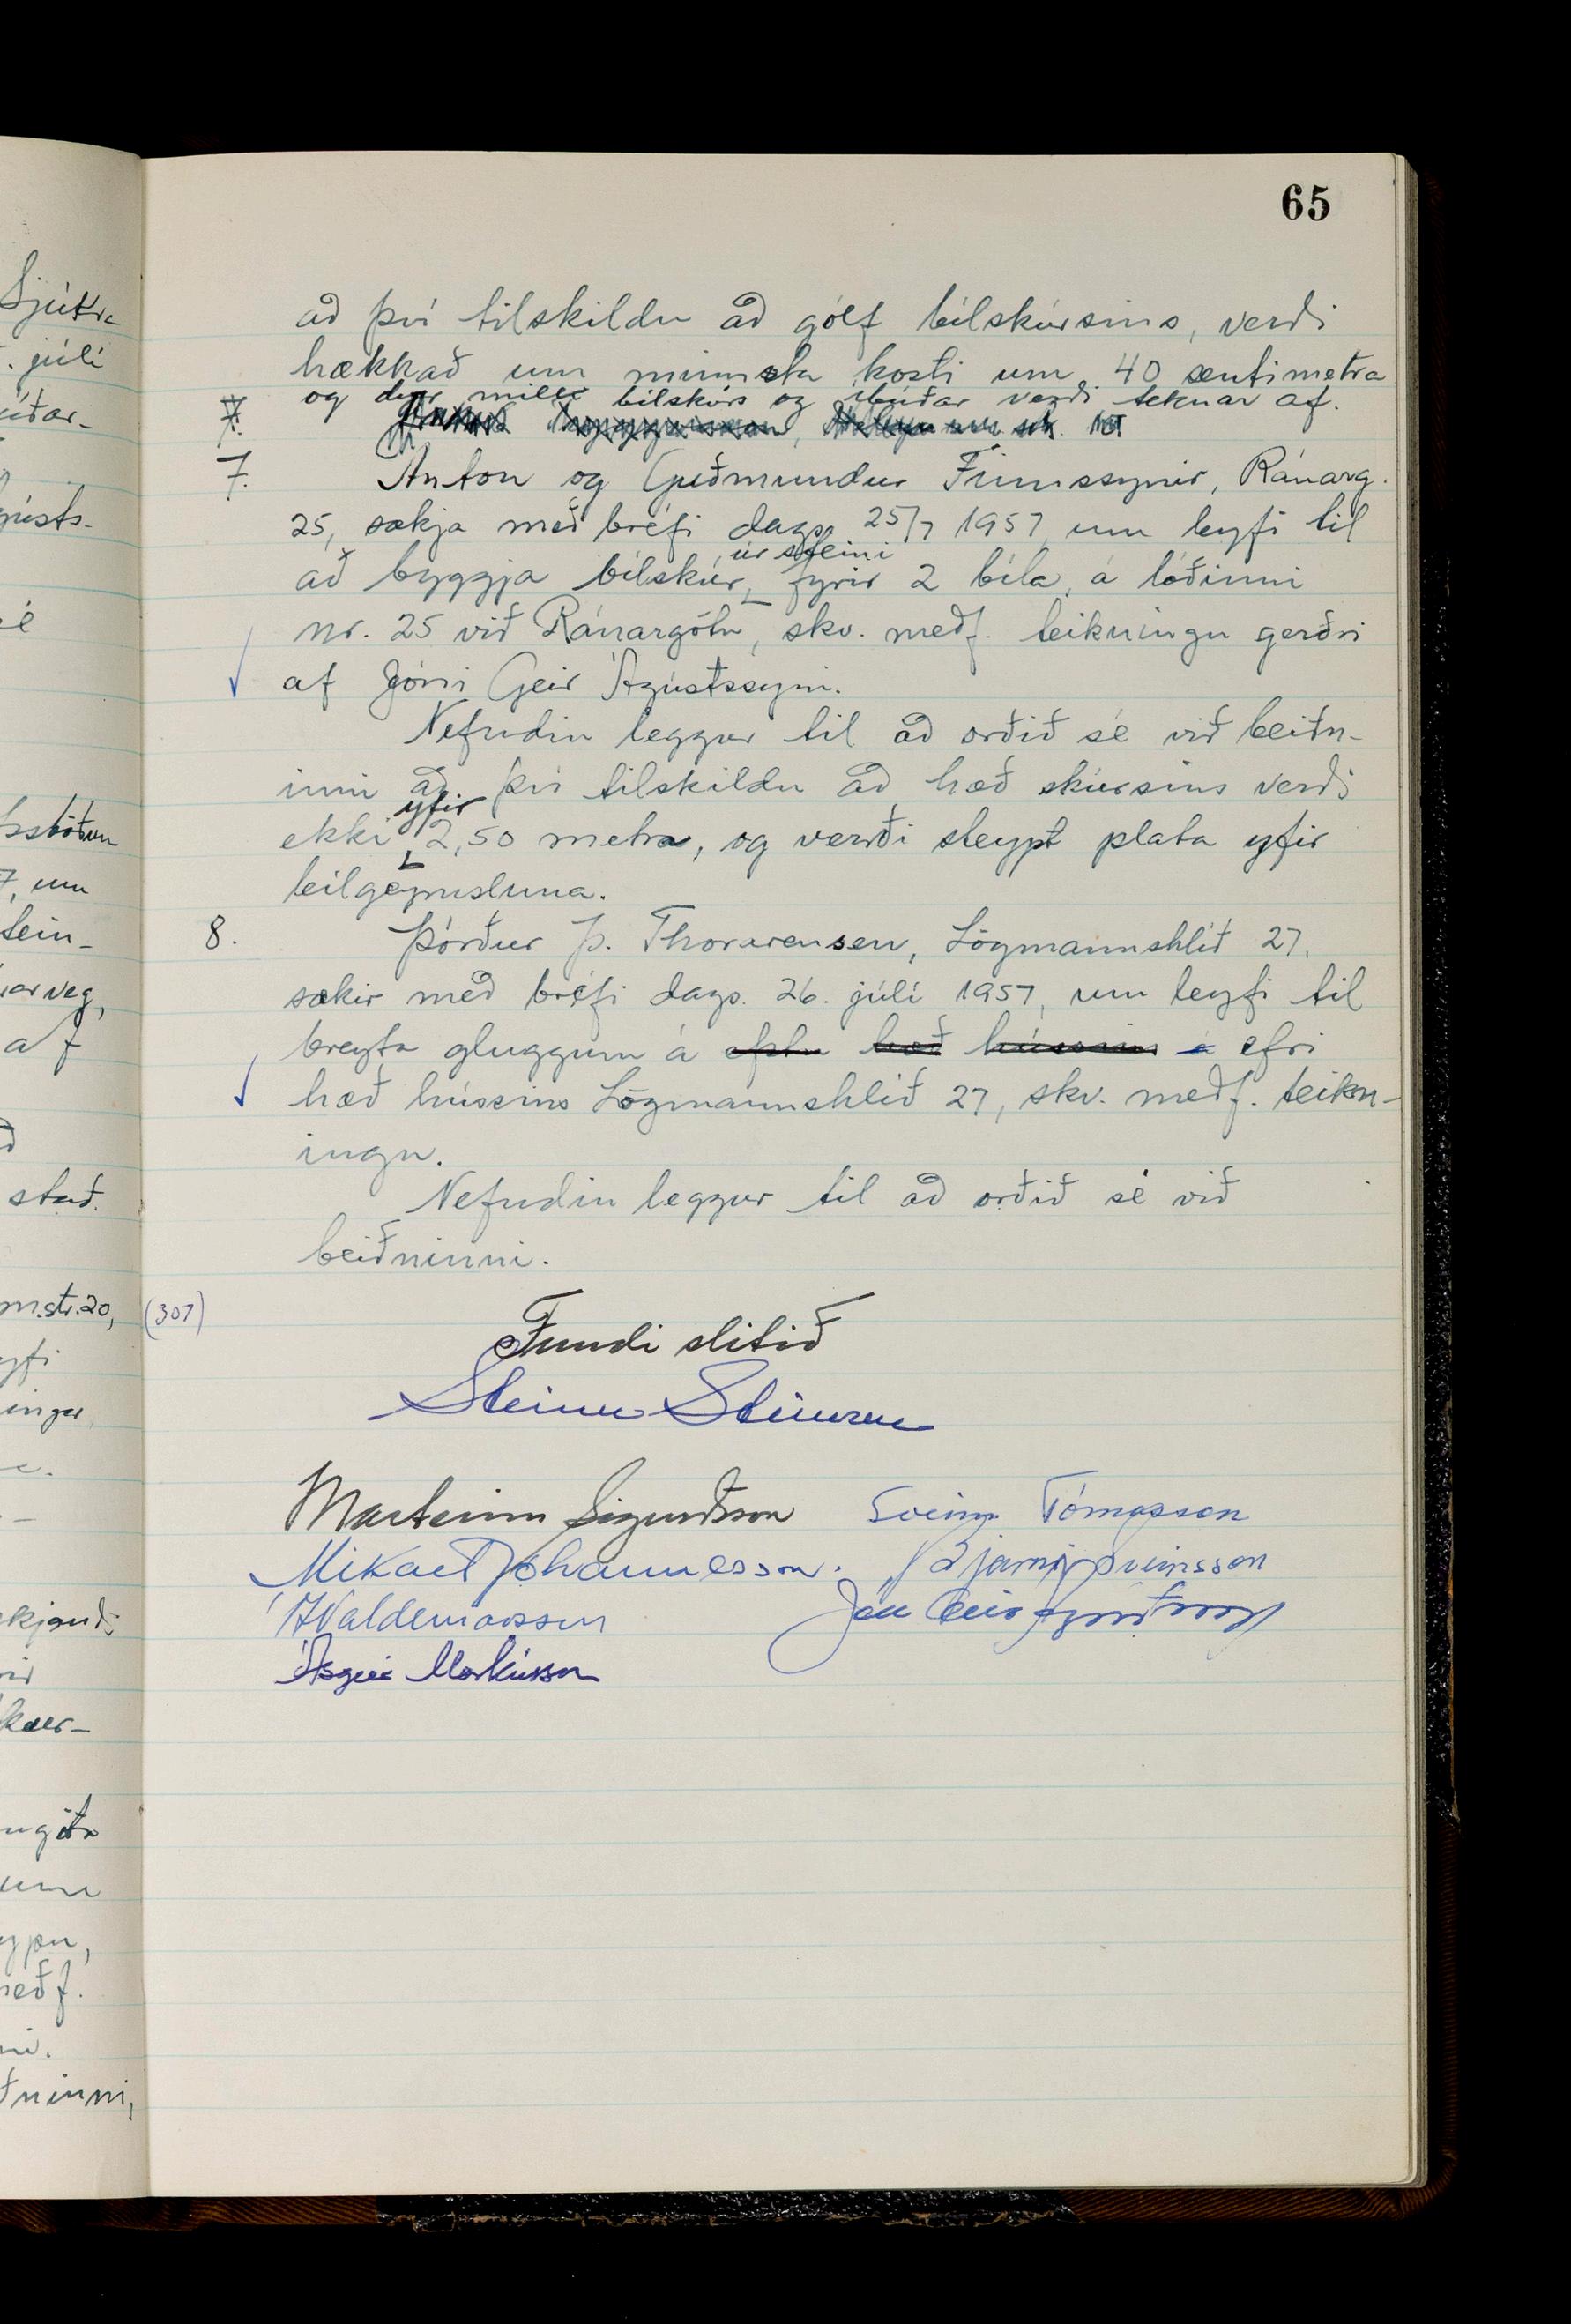 65
að því tilskildu að gólf bílskúrsins, verði
hækkað um minnsta kosti um 40 sentimetra
og dyr milli bílskúrs og íbúðar verði teknar af.
7.
7. Anton og Guðmundur Finnssynir, Ránarg.
25, sækja með bréfi dags. 25/7 1957, um leyfi til
úr steini
að byggja bílskúr, fyrir 2 bíla, á lóðinni
nr. 25 við Ránargötu, skv. meðf. teikningu gerðri
af Jóni Geir Ágústssyni.
Nefndin leggur til að orðið sé við beiðn-
inni að því tilskildu að hæð skúrsins verði
yfir
ekki 2,50 metra, og verði steypt plata yfir
bílgeymsluna.
8. Þórður Þ. Thorarensen, Lögmannshlíð 27,
sækir með bréfi dags. 26. júlí 1957, um leyfi til
breyta gluggum á efstu hæð hússins á efri
hæð hússins Lögmannshlíð 27, skv. meðf. teikn-
ingu.
Nefndin leggur til að orðið sé við
beiðninni.
(307)
Fundi slitið
Steinn Steinsen
Marteinn Sigurðsson Sveinn Tómasson
Mikael Jóhannesson. Bjarni Sveinsson
ÁValdemarsson Jón Geir Ágústsson
Ásgeir Markússon
Sjúkra
. júlí
7, um
stein-
arveg,
af
stað.
m.str.20,
meðf.